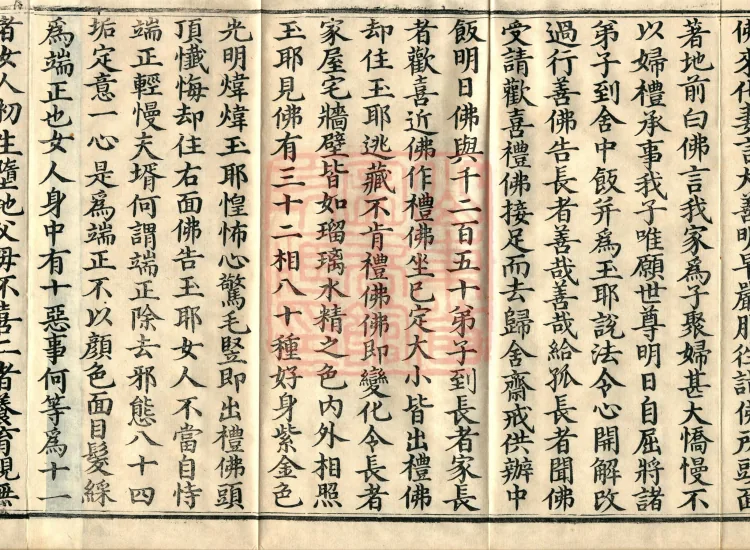 佛來化妻言大善明早嚴服往詣佛所頭面
著地前白佛言我家爲子聚婦甚大憍慢不
以婦禮承事我子唯願世尊明日自屈將諸
弟子到舍中飯并爲玉耶說法令心開解改
過行善佛告長者善哉善哉給孤長者聞佛
受請歡喜禮佛接足而去歸舍齋戒供辦中
飯明日佛與千二百五十弟子到長者家長
者歡喜近佛作禮佛坐已定大小皆出禮佛
却住玉耶逃藏不肯禮佛佛即變化令長者
家屋宅牆壁皆如瑠璃水精之色內外相照
玉耶見佛有三十二相八十種好身紫金色
光明煒煒玉耶惶怖心驚毛竪即出禮佛頭
頂懺悔却住右面佛告玉耶女人不當自恃
端正輕慢夫壻何謂端正除去邪態八十四
垢定意一心是爲端正不以顏色面目髮綵
爲端正也女人身中有十惡事何等爲十一
者女人初生墮地父母不喜二者養育視無